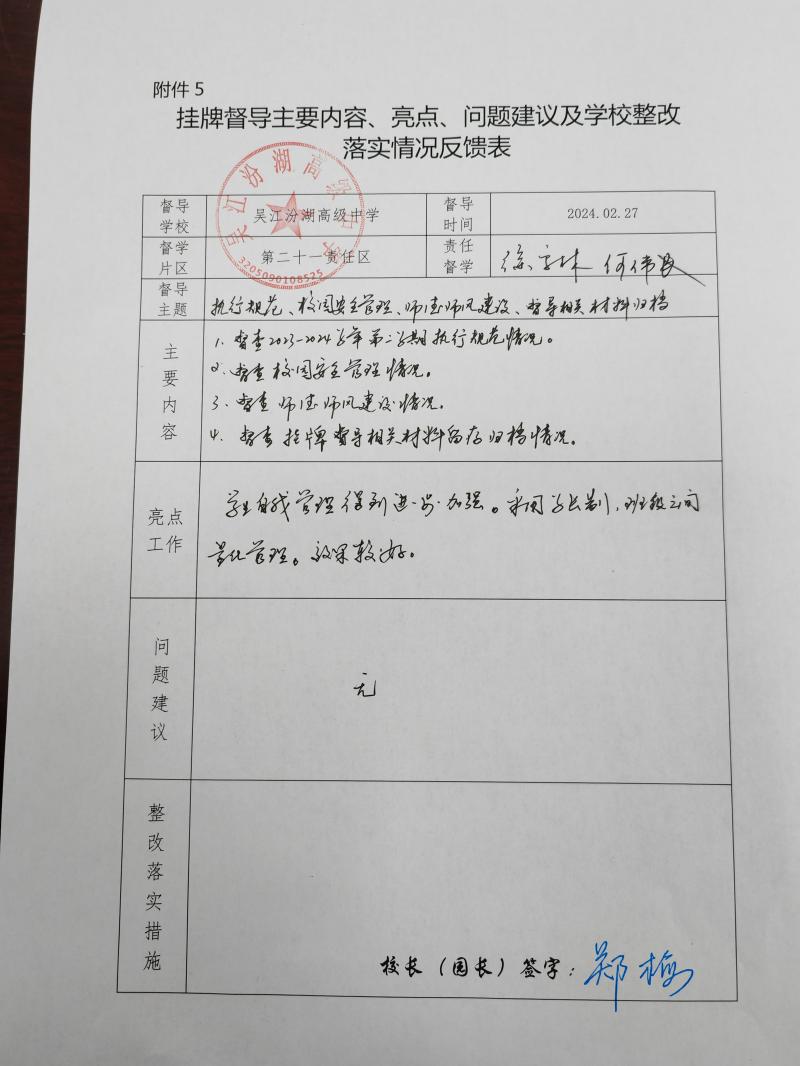 附件 5
挂牌督导主要内容、亮点、问题建议及学校整改
落实情况反馈表
吴江汾湖高级中学
3205090108525
督导学校 吴江汾湖高级中学 督导时间 2024.02.27
督学片区 第二十一责任区 责任督学
督导主题 执行规范、校园安全管理、师德师风建设、督导相关材料归档
主要内容
1. 督查2023-2024学年第二学期执行规范情况。
2. 督查校园安全管理情况。
3. 督查师德师风建设情况。
4. 督查挂牌督导相关材料留存归档情况。
亮点工作
学生自我管理得到进一步加强。采用学长制，班级之间
量化管理。效果较好。
问题建议
无
整改落实措施
校长（园长）签字：郑梅